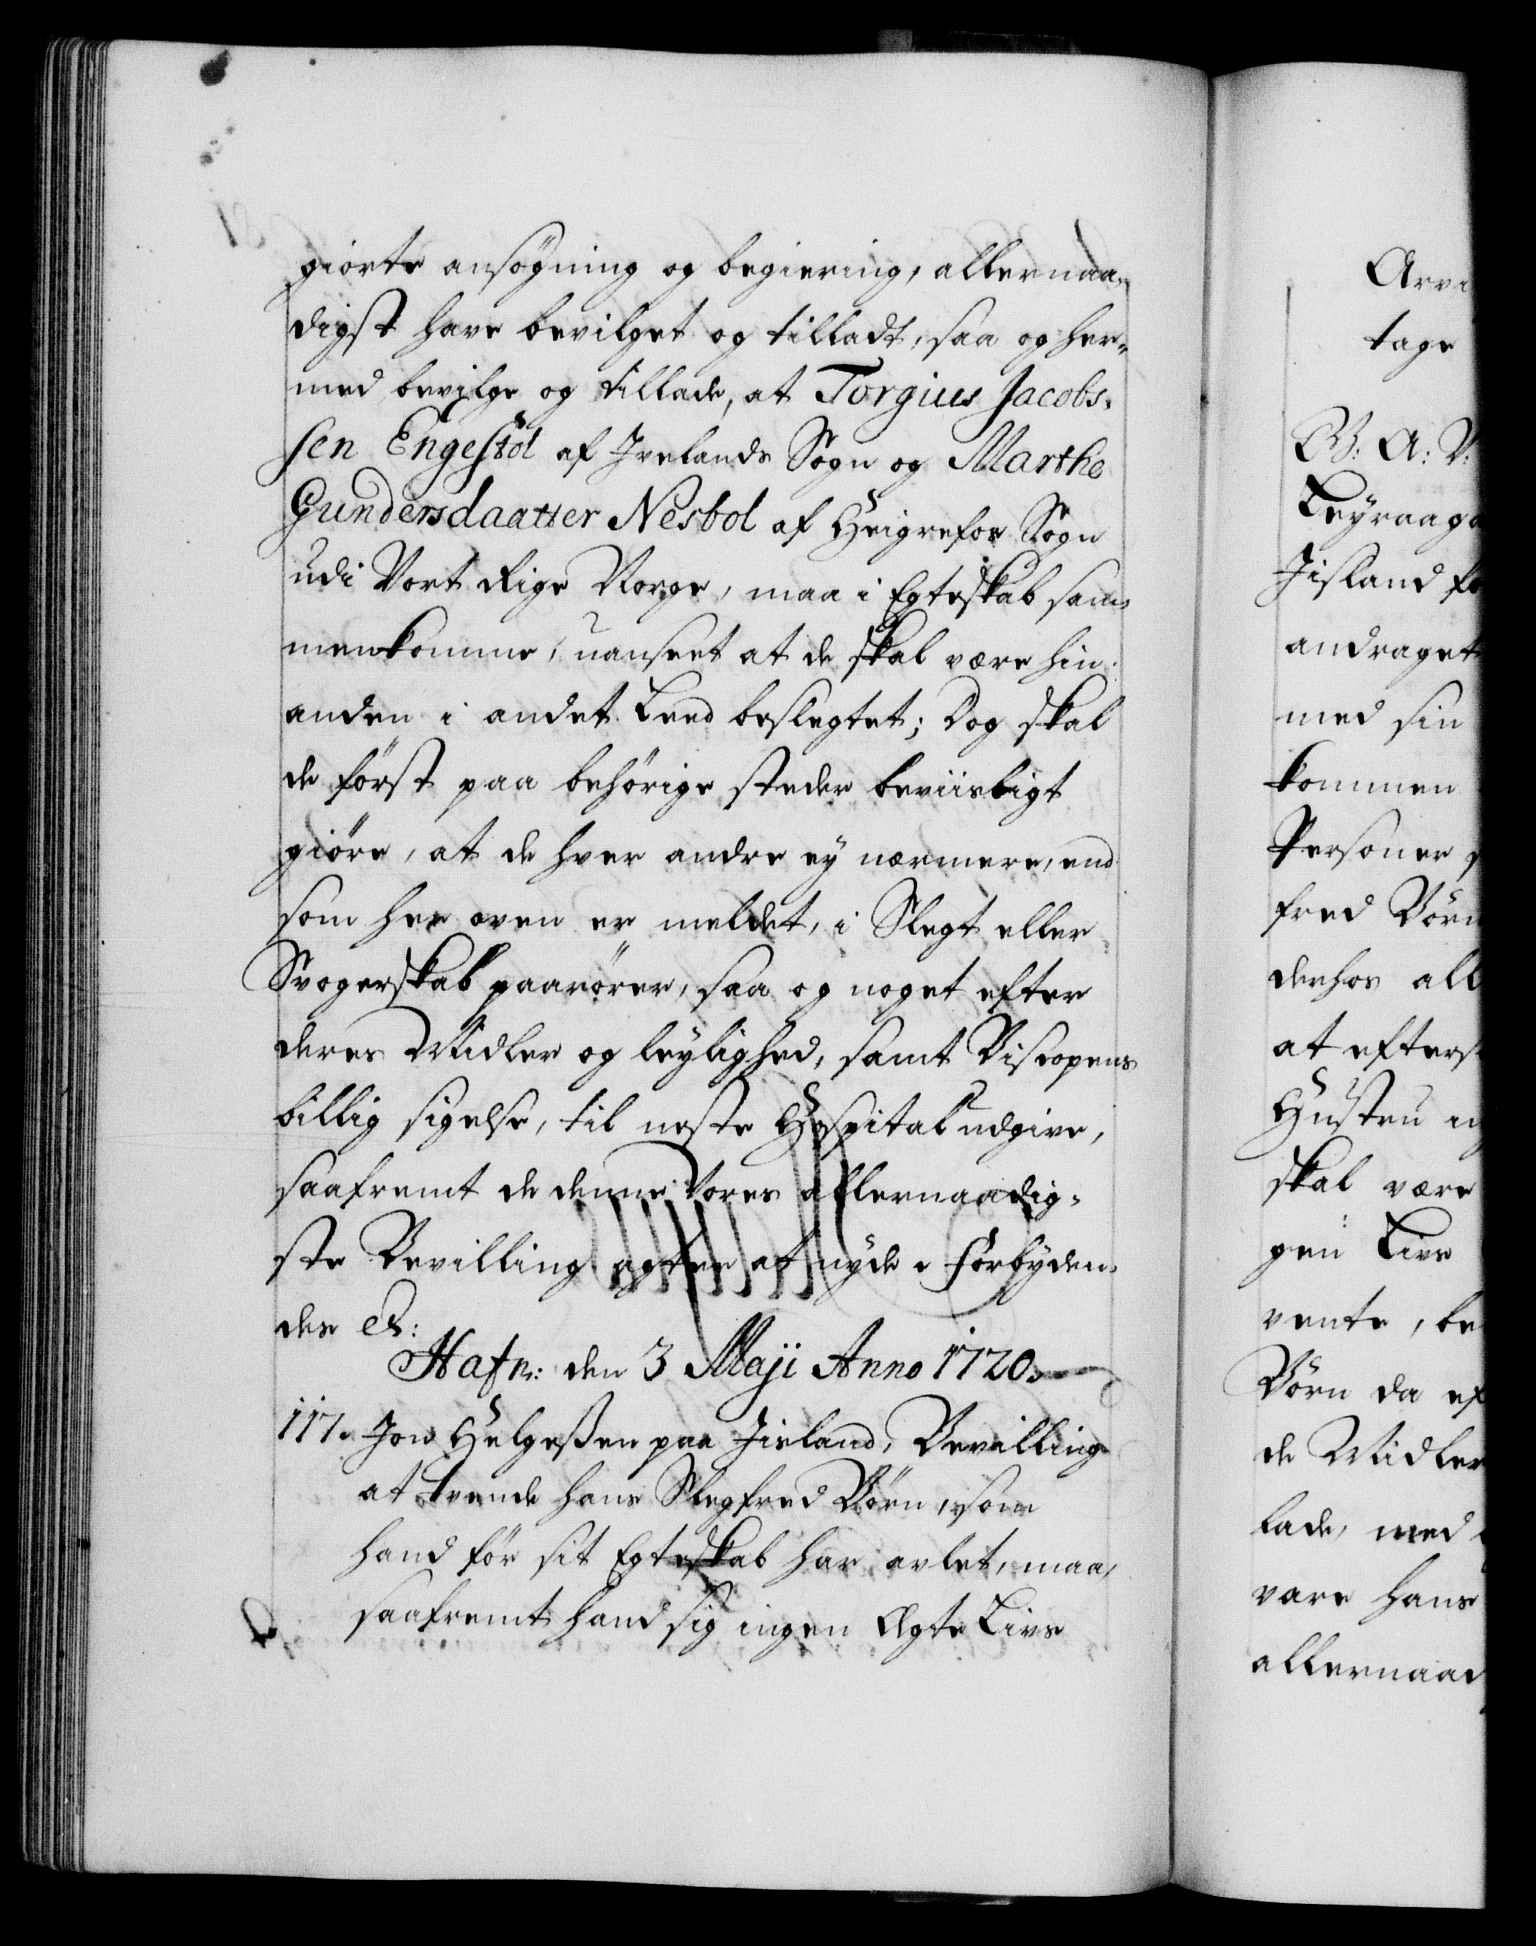 giorte ansøgning og begiering, allernaa-
digst have bevilget og tilladt, saa og her-
med bevilge og tillade, at Torgius Jacobs-
sen Engestöl af Ivelands Sogn og Marthe
Gundersdaatter Nesbol af Heigrefos Sogn
udi Vort Rige Norge, maa i Egteskab sam-
menkomme, uanseet at de skal være hin-
anden i andet Leed beslegtet; Dog skal
de först paa behörige steder beviisligt
giöre, at de hver andre ej nærmere, end
som her oven er meldet, i Slegt eller
Svogerskab paarörer, saa og noget efter
deres Midler og leylighed, samt Biscopens
billig sigelse, til neste Hospital udgive,
saafremt de denne Vores allernaadig-
ste Bevilling agter at nyde. Forbyden-
des etc:
Hafn: den 3 Maji Anno 1720.
117. Jon Helgeßen paa Jisland, Bevilling
at tvende hans Slegfred Börn, som
hand för sit Egteskab har avlet, maa,
saafremt hand sig ingen Ægte Livs
Arvi
tage
G: A: V:
Leyraag
Jisland
andraget
med sin
kommen
Personer
fred Börn
derhos all
at efters
Hustru
skal være
gen Livs
vente, be
Börn da ef
de Midler
lade, med
vare hans
allernaad